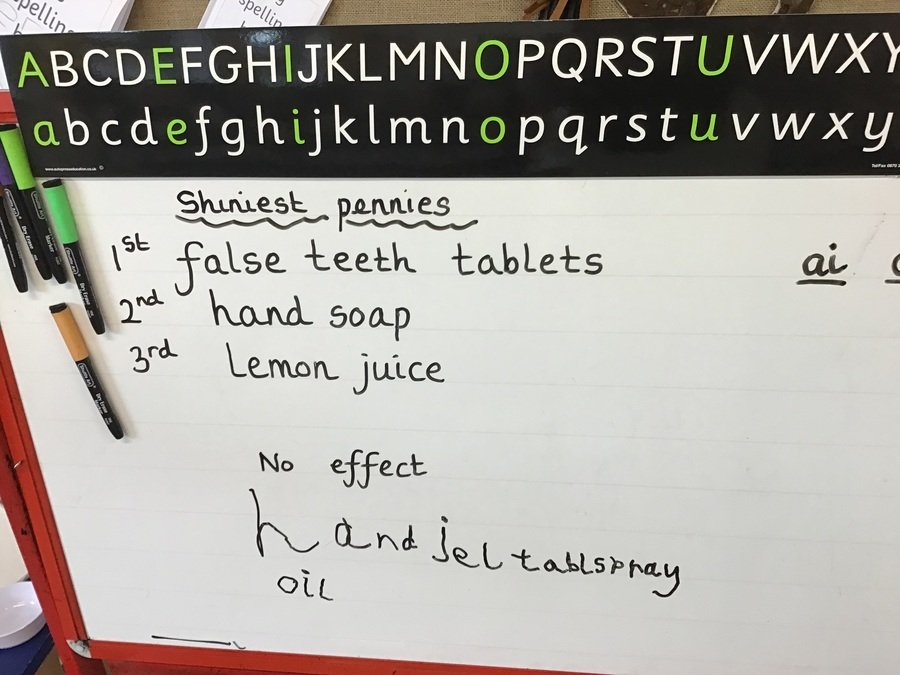 spelling
spelling
ABCDEFGHIJKLMNOPQRSTUVWXY
abcdefghijklmnopqrstuvwxy
Shiniest pennies
1st false teeth tablets
ai
2nd hand soap
3rd Lemon juice
No effect
hand jel tablspray
oil